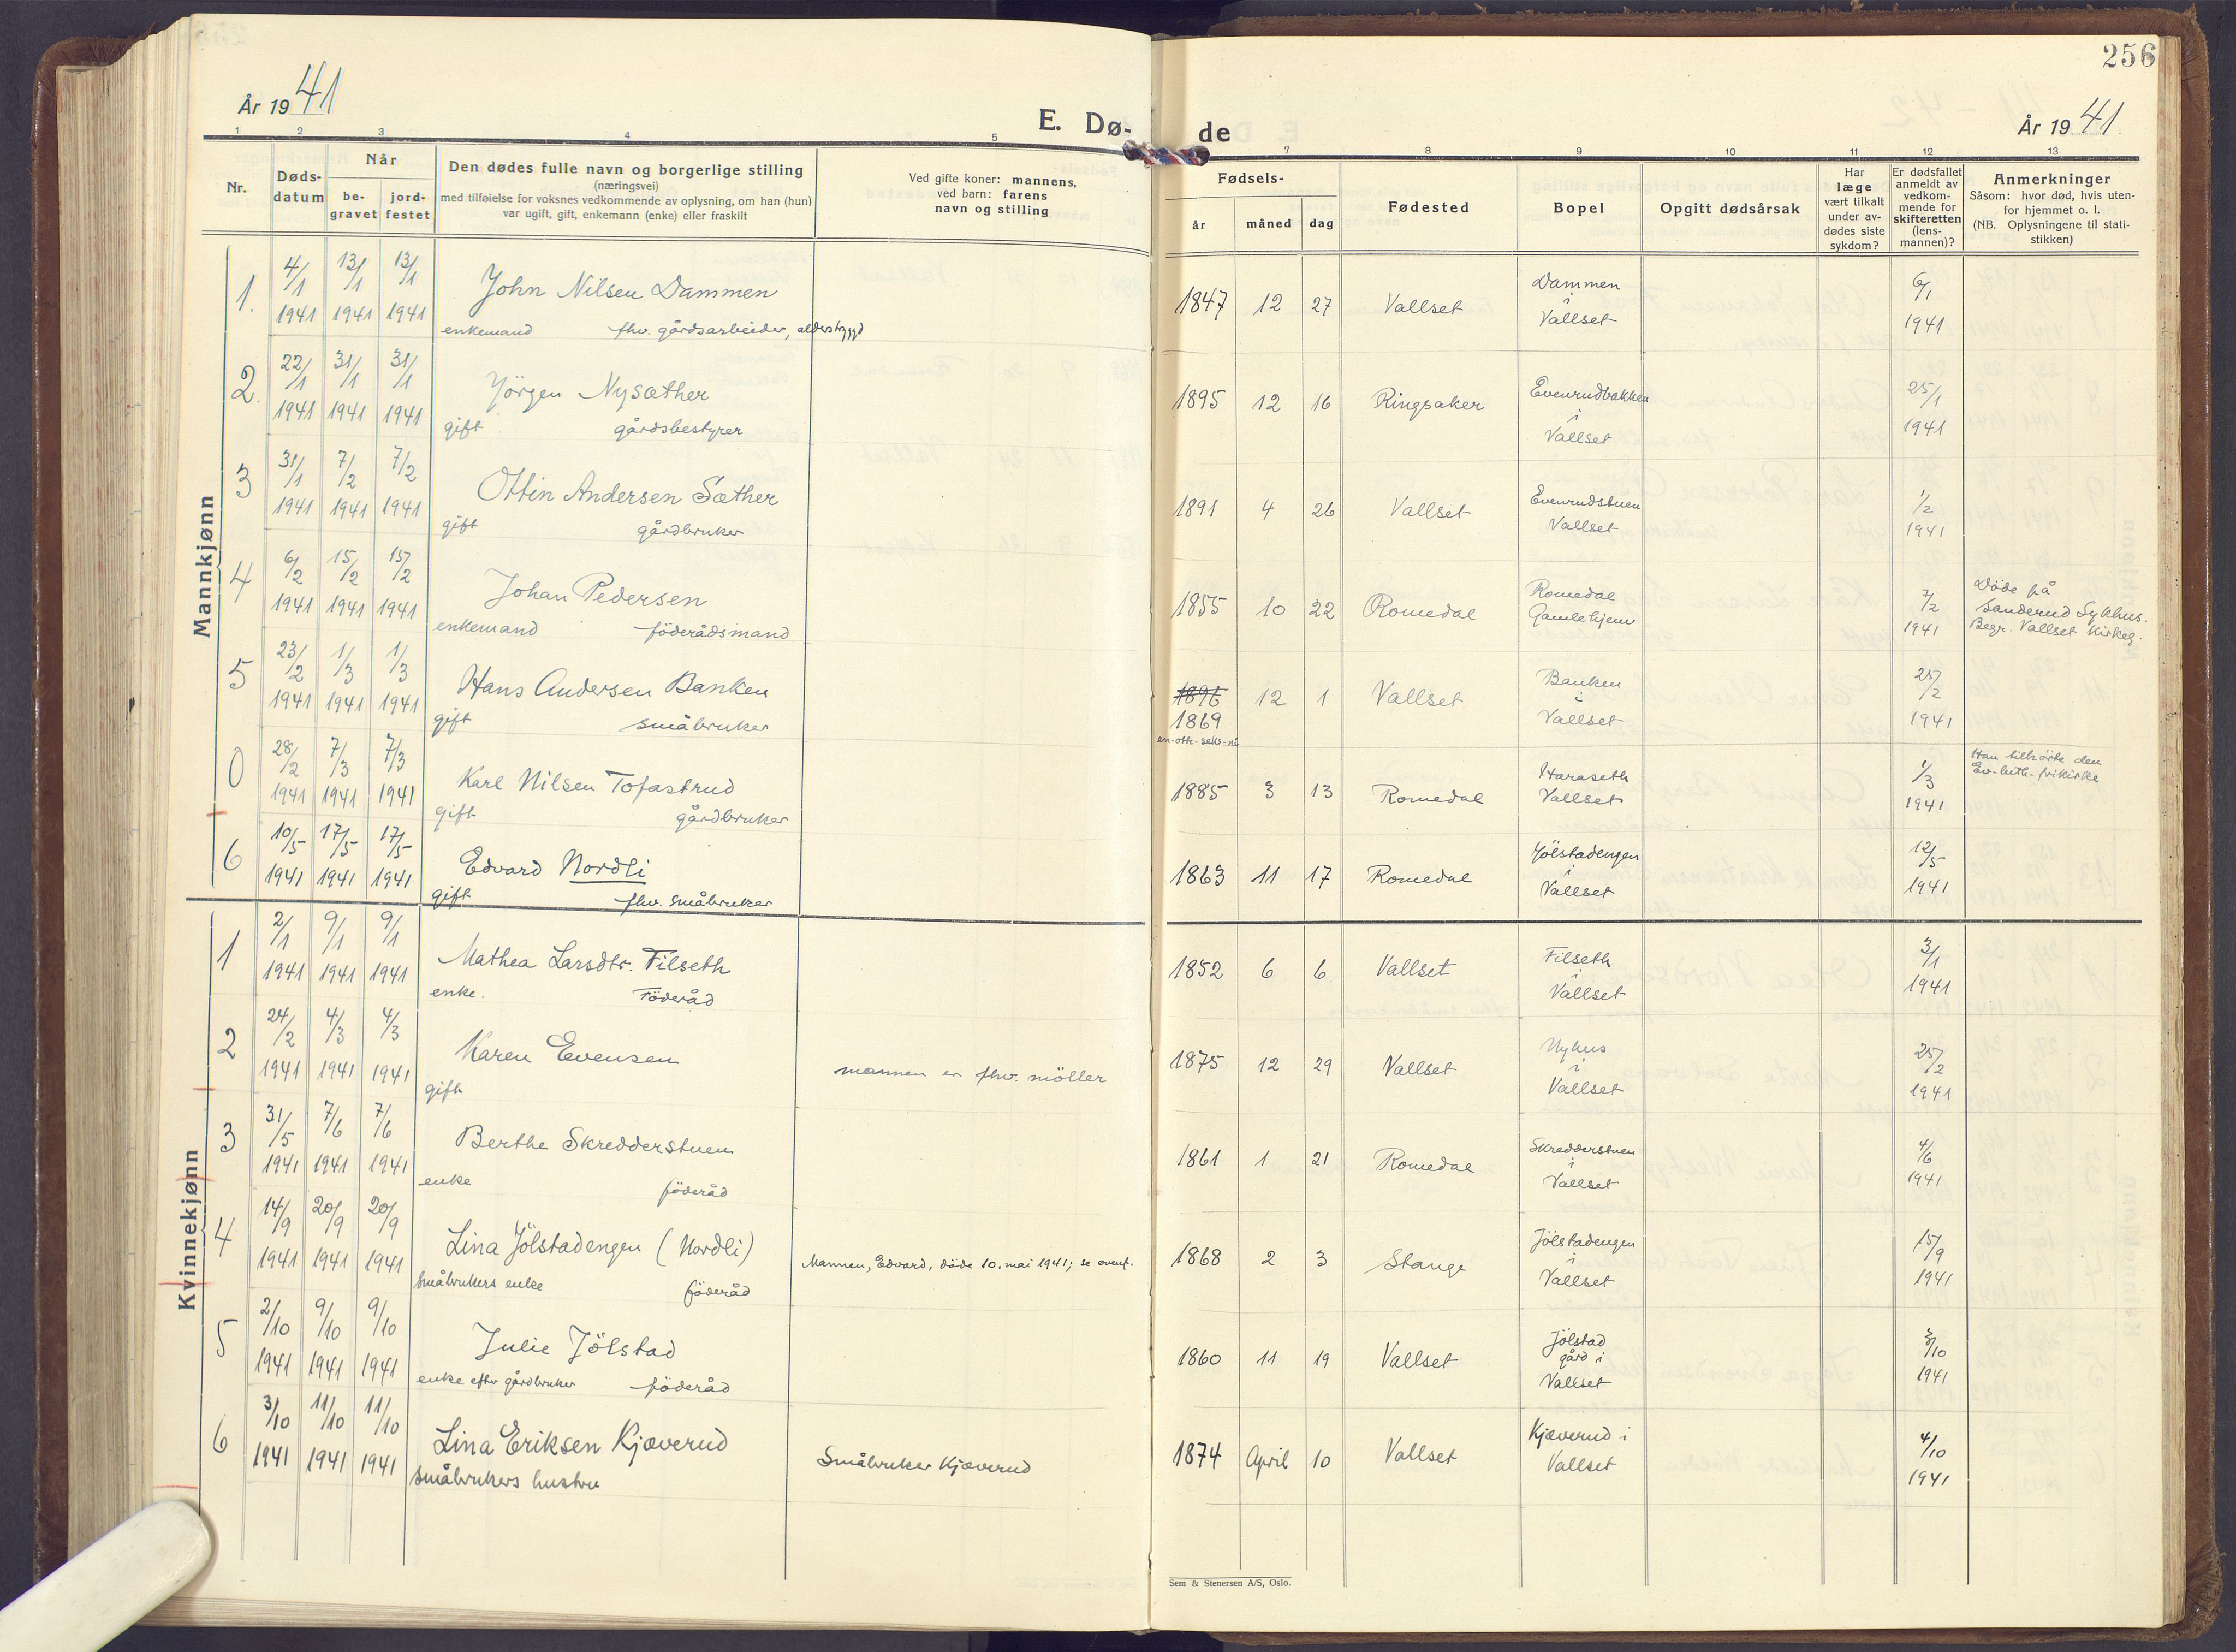 256
År 1941
E. Dø-
de
År 1941
1 2 3 4 5
7 8 9 10 11 12 13
Nr.
Døds-
datum
Når
be-
gravet
jord-
festet
Den dødes fulle navn og borgerlige stilling
(næringsvei)
med tilføielse for voksnes vedkommende av oplysning, om han (hun)
var ugift, gift, enkemann (enke) eller fraskilt
Ved gifte koner: mannens,
ved barn: farens
navn og stilling
Fødsels-
år måned dag
Fødested
Bopel
Opgitt dødsårsak
Har
læge
vært tilkalt
under av-
dødes siste
sykdom?
Er dødsfallet
anmeldt av
vedkom-
mende for
skifteretten
(lens-
mannen)?
Anmerkninger
Såsom: hvor død, hvis uten-
for hjemmet o. l.
(NB. Oplysningene til stati-
stikken)
Mannkjønn
1. 4/1 1941 13/1 1941 13/1 1941 John Nilsen Dammen
enkemand fhv. gårdsarbeider, alderstrygd
1847 12 27 Vallset Dammen i Vallset 6/1 1941
2. 22/1 1941 31/1 1941 31/1 1941 Jörgen Nysæther
gift gårdsbestyrer
1895 12 16 Ringsaker Evenrudbakken i Vallset 25/1 1941
3 31/1 1941 7/2 1941 7/2 1941 Ottin Andersen Sæther
gift gårdbruker
1891 4 26 Vallset Evenrudstuen Vallset 1/2 1941
4 6/2 1941 15/2 1941 15/2 1941 Johan Pedersen
enkemand föderådsmand
1855 10 22 Romedal Romedal Gamlehjem 7/2 1941 Döde på
Sanderud Sykhus.
Begr. Vallset Kirkeg.
5 23/2 1941 1/3 1941 1/3 1941 Hans Andersen Banken
gift småbruker
1896 1869 12 1 Vallset Banken i Vallset 25/2 1941
en-otte-seks-ni
0 28/2 1941 7/3 1941 7/3 1941 Karl Nilsen Tofastrud
gift gårdbruker
1885 3 13 Romedal Haraseth Vallset 1/3 1941 Han tilhörte den
Ev.-luth.-frikirke
6 10/5 1941 17/5 1941 17/5 1941 Edvard Nordli
gift fhv. småbruker
1863 11 17 Romedal Jölstadengen i Vallset 12/5 1941
Kvinnekjønn
1 2/1 1941 9/1 1941 9/1 1941 Mathea Larsdtr. Filseth
enke. Föderåd
1852 6 6 Vallset Filseth i Vallset 3/1 1941
2 24/2 1941 4/3 1941 4/3 1941 Karen Evensen
gift mannen er fhv. möller
1875 12 29 Vallset Nyhus i Vallset 25/2 1941
3 31/5 1941 7/6 1941 7/6 1941 Berthe Skredderstuen
enke föderåd
1861 1 21 Romedal Skredderstuen i Vallset 4/6 1941
4 14/9 1941 20/9 1941 20/9 1941 Lina Jölstadengen (Nordli)
småbrukers enke föderåd Mannen, Edvard, döde 10. mai 1941; se ovenf.
1868 2 3 Stange Jölstadengen i Vallset 15/9 1941
5 2/10 1941 9/10 1941 9/10 1941 Julie Jölstad
enke efter gårdbruker föderåd
1860 11 19 Vallset Jölstad gård i Vallset 3/10 1941
6 3/10 1941 11/10 1941 11/10 1941 Lina Eriksen Kjæverud
småbrukers hustru Småbruker Kjæverud
1874 April 10 Vallset Kjæverud i Vallset 4/10 1941
Sem & Stenersen A/S, Oslo.